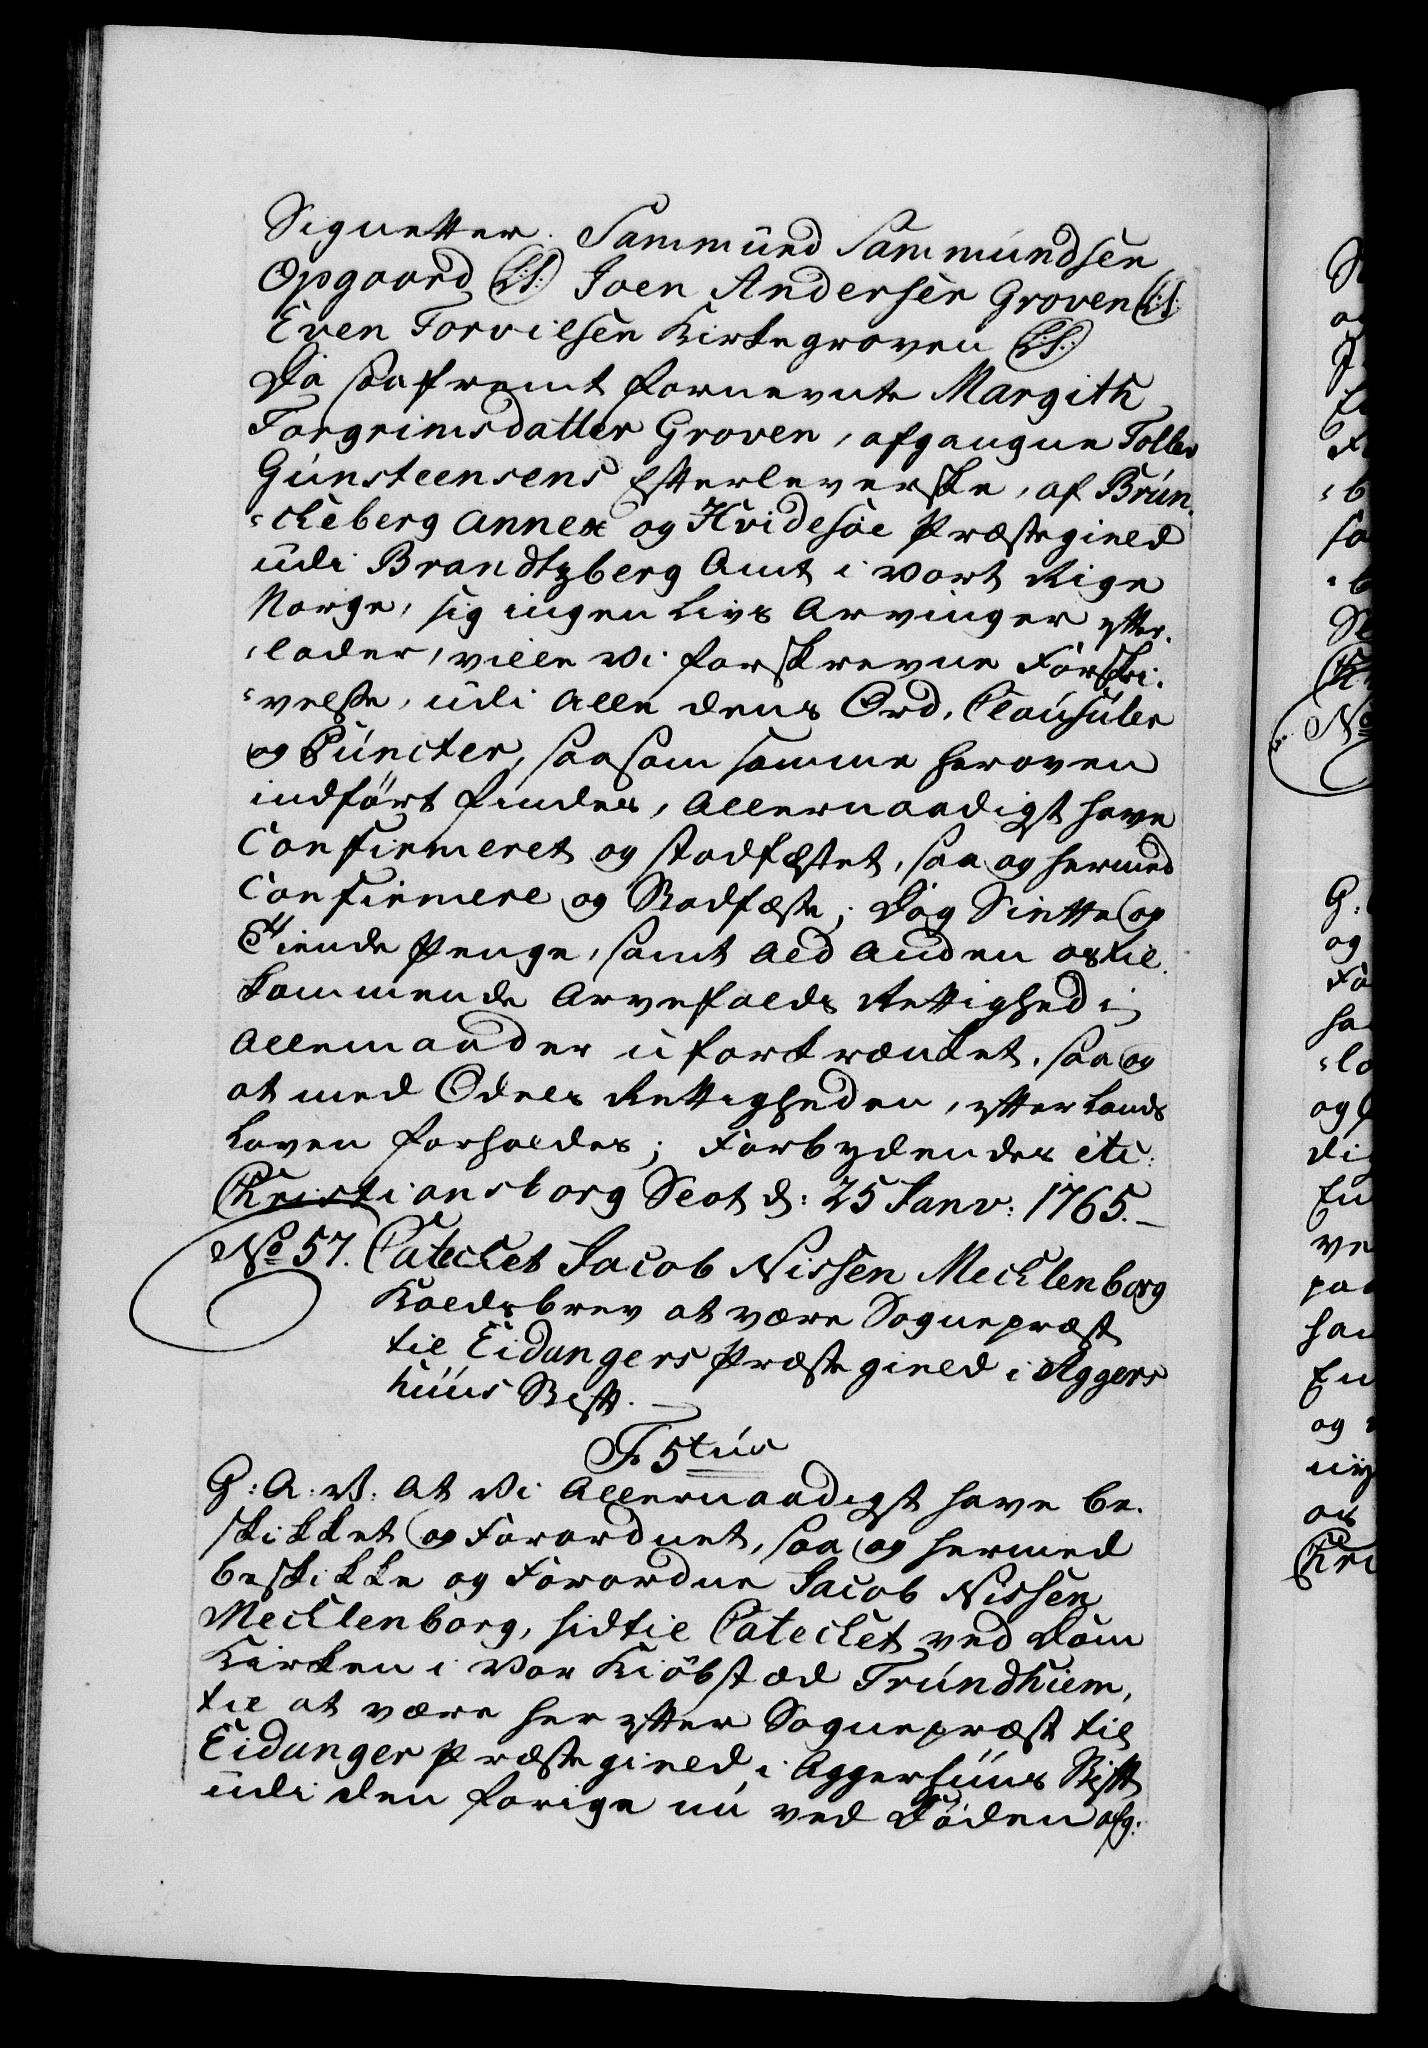 Signetter. Sammund Sammundsen
Opgaard (L:S:) Joen Andersen Groven (L:S:
Even Torvilsen Kirkegroven (L:S:)
Da saafremt fornevnte Margith
Torgrimsdatter Groven, afgangne Tollev
Gunsteensens Efterleverske, af Brun-
-cheberg Annex og Hvidesøe Præstegield
udi Brandtzberg Amt i vort Rige
Norge, sig ingen Livs Arvinger efter-
-lader, ville Vi forskrevne Forskri-
-velse, udi alle dens Ord, Clausuler
og Puncter, saasom samme heroven
indført findes, Allernaadigst have
Confirmeret og stadfæstet, saa og hermed
Confirmere og Stadfæste; Dog Siette og
Tiende Penge, samt ald anden os til-
kommende Arvefalds Rettighed i
allemaader uforkrænket, saa og
at med Odels Rettigheden, efter Lands
Loven forholdes; Forbydendes etc:
Christiansborg Slot d: 25 Janv: 1765.-
No 57. Catechet Jacob Nissen Mecklenborg
Kaldsbrev at være Sognepræst
til Eidangers Præstegield i Aggers
huus Stift.
F. 5tus
G: A: V: At Vi Allernaadigst have be-
skikket og Forordnet, saa og hermed
beskikke og Forordne Jacob Nissen
Mecklenborg, hidtil Catechet ved Dom
Kirken i vor Kiøbstæd Trundhiem,
til at være her efter Sognepræst til
Eidanger Præstegield i Aggershuus Stift
udi den forige nu ved Døden afg: